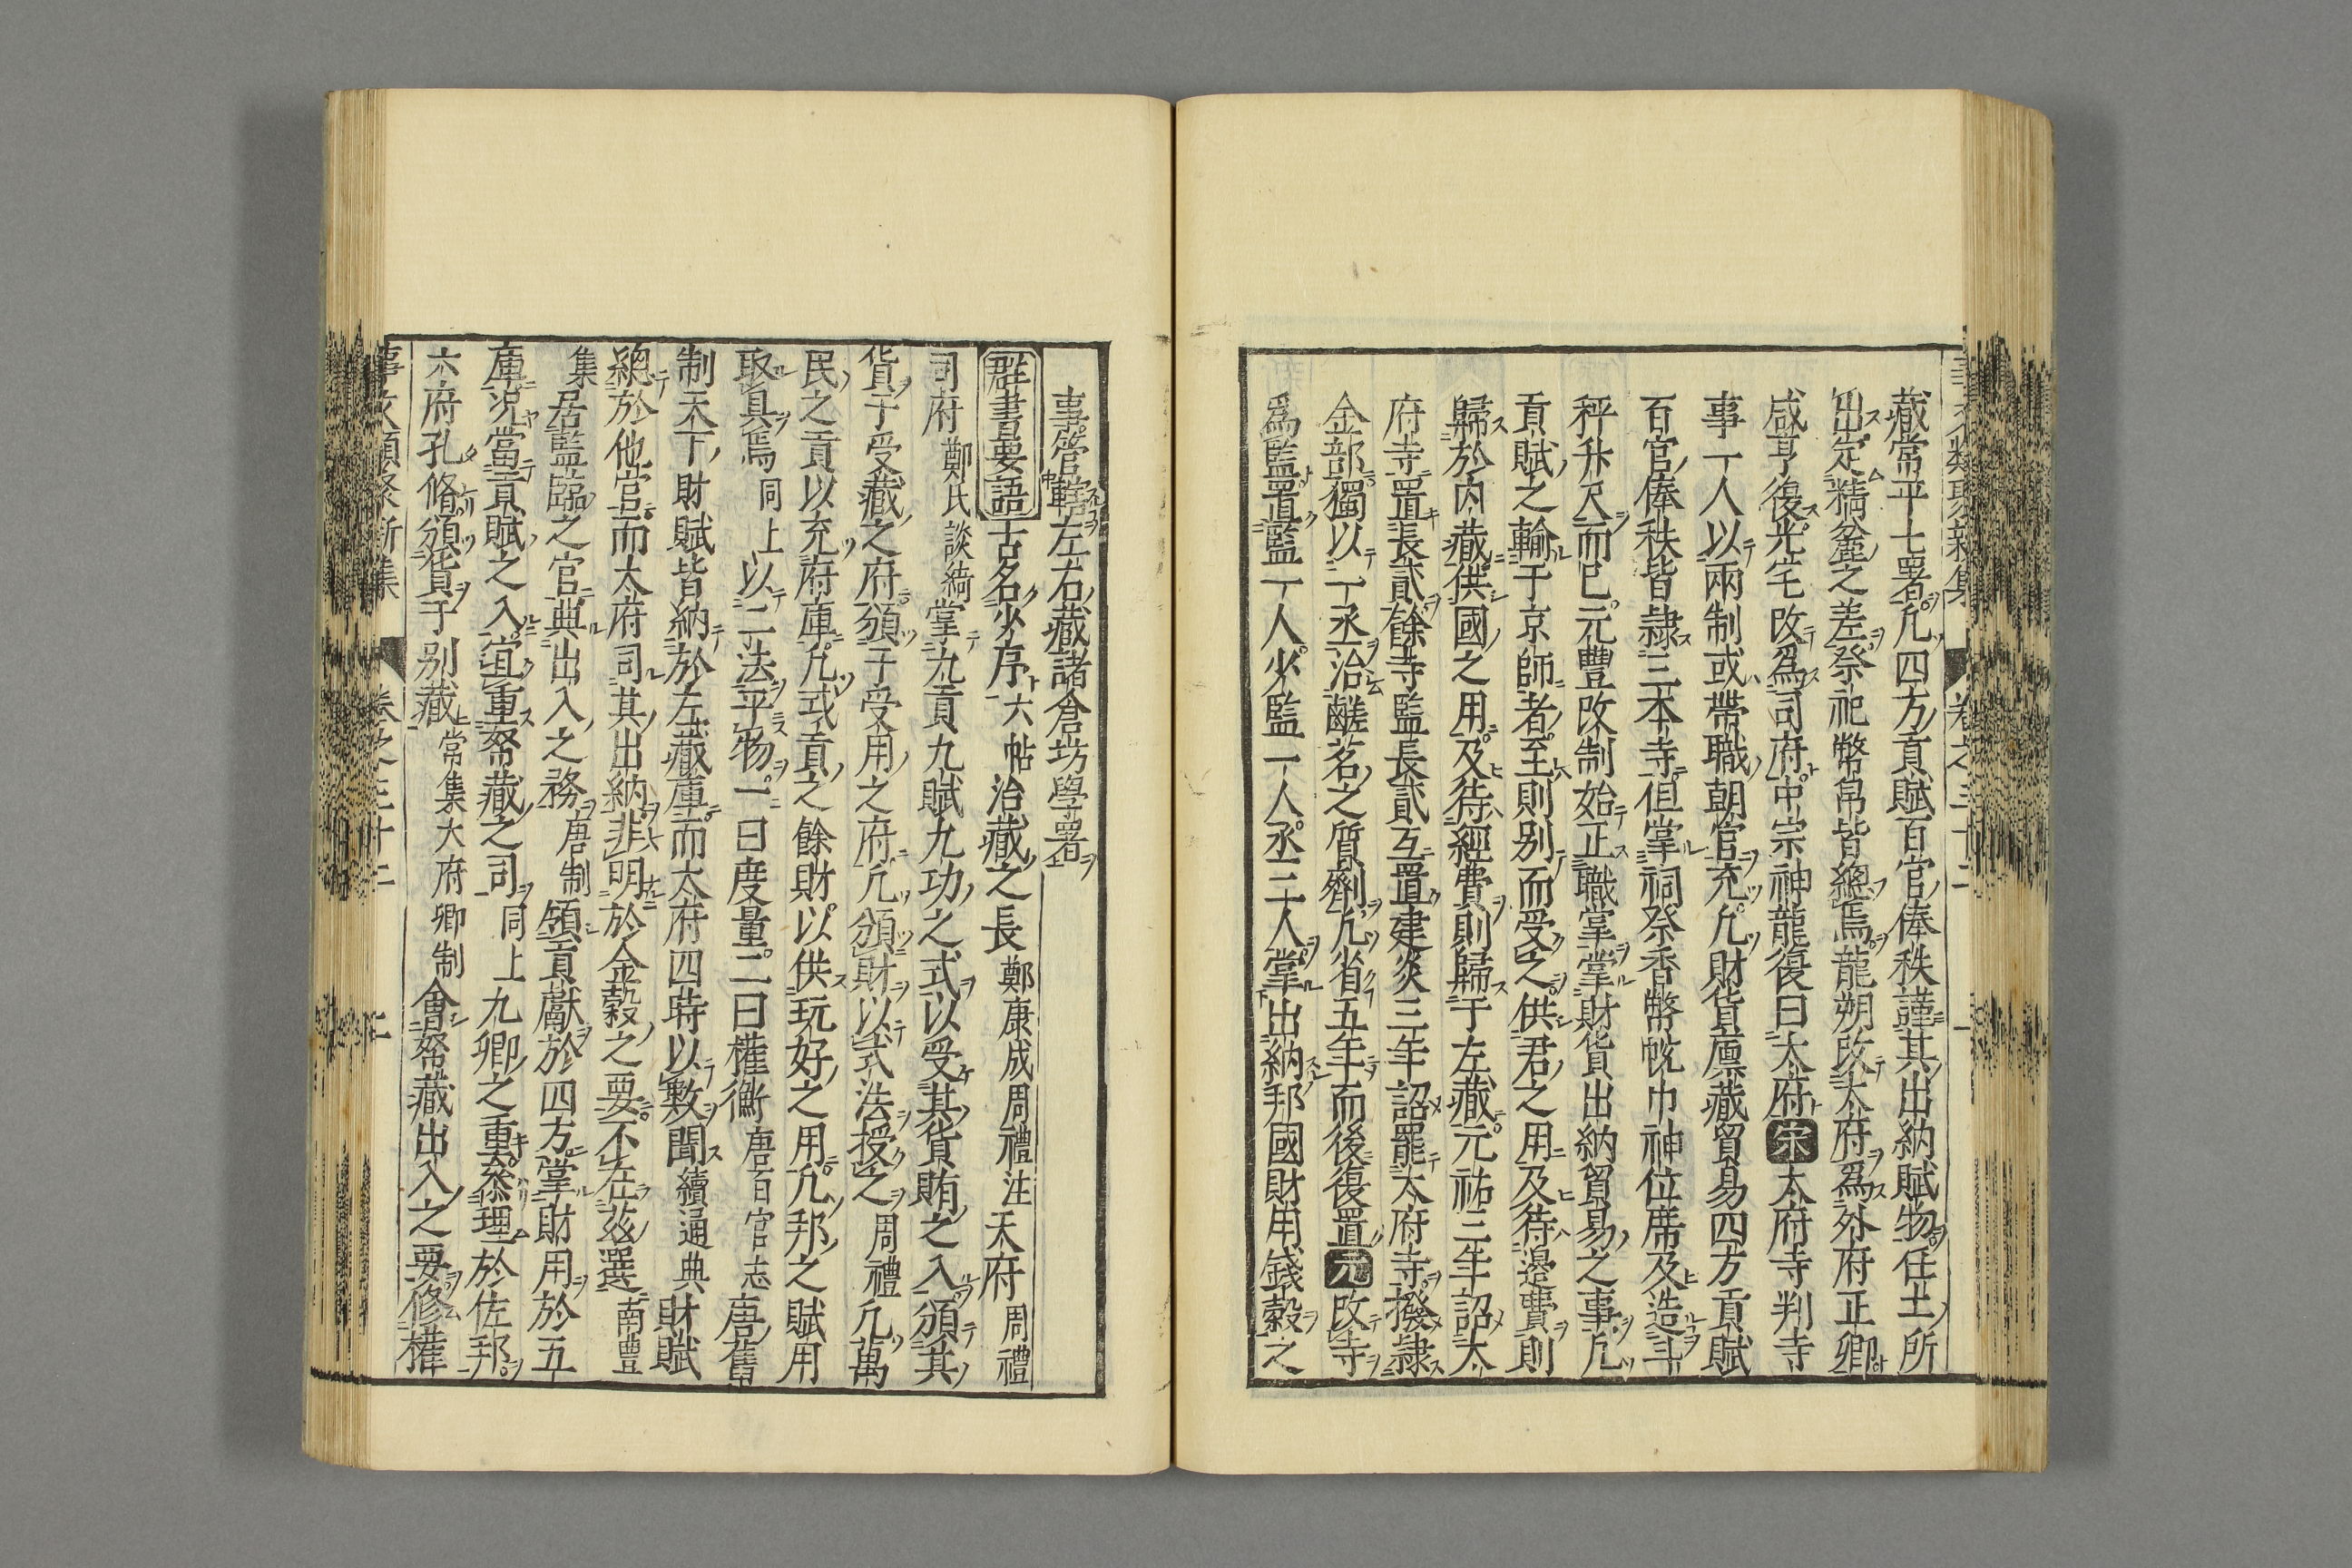 藏常平七署凡四方貢賦百官俸秩謹其出納賦物任土所
出定精麄之差祭祀幣帛皆總焉龍朔改太府爲外府正卿
咸亨復光宅改爲司府中宗神龍復曰太府宋太府寺判寺
事一人以兩制或帶職朝官充凡財貨廩藏貿易四方貢賦
百官俸秩皆隷三本寺但掌祠祭香幣帨巾神位席及造斗
秤升尺而已元豐改制始正職掌掌財貨出納貿易之事凡
貢賦之輸于京師者至則别而受之供君之用及待邊費則
歸於内藏供國之用及待經費則歸于左藏元祐三年詔太
府寺置長貳餘寺監長貳互置建炎三年詔罷太府寺撥隷
金部獨以一丞治鹺茗之質劑凡省五年而後復置元改寺
爲監置監一人少監一人丞三人掌出納邦國財用錢穀之
事管轄左右藏諸倉坊學署
群書要語古名少府六帖治藏之長鄭康成周禮注天府周禮
司府鄭氏談綺掌九貢九賦九功之式以受其貨賄之入頒其
貨于受藏之府頒于受用之府凡頒財以式法授之周禮凡萬
民之貢以充府庫凡式貢之餘財以供玩好之用凡邦之賦用
取具焉同上以二法平物一曰度量二曰權衡唐百官志唐舊
制天下財賦皆納於左藏庫而太府四時以數聞續通典財賦
總於他官而太府司其出納非明於金穀之要不在茲選南豐
集居監臨之官典出入之務唐制領貢獻於四方掌財用於五
庫況當貢賦之入宜重帑藏之司同上九卿之重叅理於佐邦
六府孔脩頒貨于别藏常集大府卿制會帑藏出入之要修權
事文類聚新集
卷之三十二
二